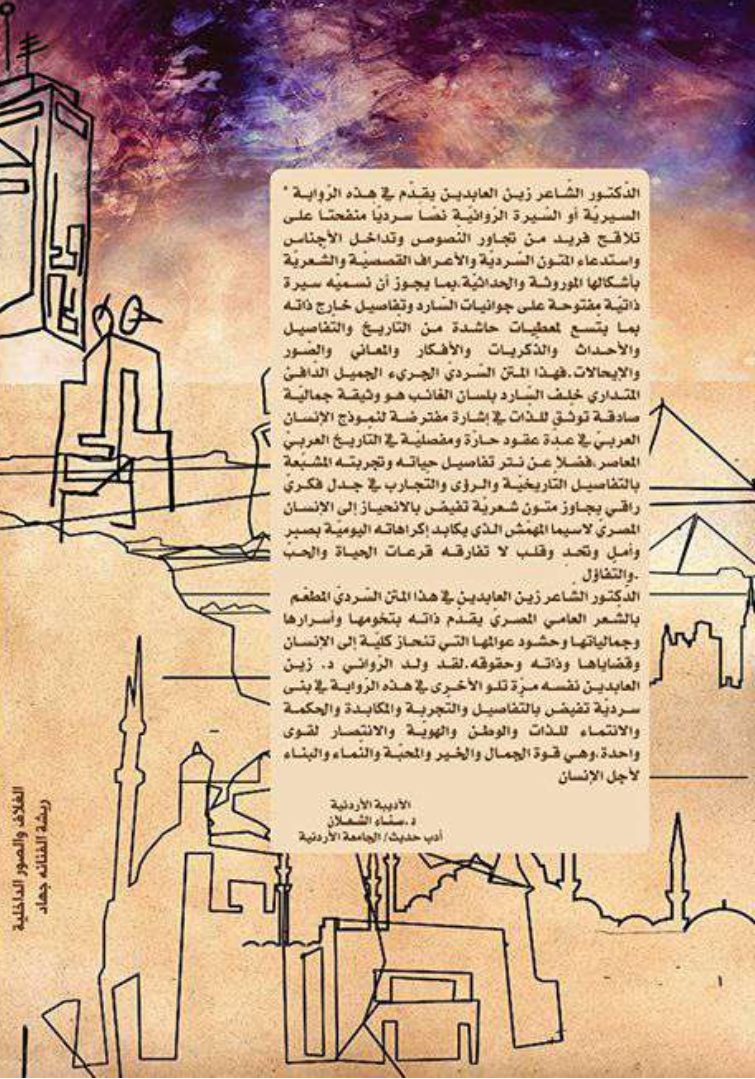 الدّكتور الشّاعر زين العابدين يقدّم في هذه الرّواية "
السيريّة أو السّيرة الرّوائيّة نصًا سرديًا منفحتا على
تلاقح فريد من تجاور النّصوص وتداخل الأجناس
واستدعاء المتون السّرديّة والأعراف القصصيّة والشعريّة
بأشكالها الموروثة والحداثيّة.بما يجوز أن نسميه سيرة
ذاتيّة مفتوحة على جوانيات السّارد وتفاصيل خارج ذاته
بما يتسع لمعطيات حاشدة من التاريخ والتفاصيل
والأحداث والذّكريات والأفكار والمعاني والصّور
والإيحالات.فهذا المتن السّرديّ الجريء الجميل الدّافئ
المتداري خلف السّارد بلسان الغائب هو وثيقة جماليّة
صادقة توثّق للذات في إشارة مفترضة لنموذج الإنسان
العربيّ في عدة عقود حارّة ومفصليّة في التاريخ العربيّ
المعاصر،فضلاً عن نتر تفاصيل حياته وتجربته المشبّعة
بالتفاصيل التاريخيّة والرؤى والتجارب في جدل فكريّ
راقي يجاوز متون شعريّة تفيض بالانحياز إلى الإنسان
المصريّ لاسيما المهمّش الذي يكابد إكراهاته اليوميّة بصبر
وأمل وتحد وقلب لا تفارقه قرعات الحياة والحبّ
.والتفاؤل
الدّكتور الشاعر زين العابدين في هذا المتن السّرديّ المطعّم
بالشّعر العامي المصريّ يقدّم ذاته بتخومها وأسرارها
وجمالياتها وحشود عوالمها التي تنحاز كليّة إلى الإنسان
وقضاباها وذاته وحقوقه.لقد ولد الرّوائي د. زين
العابدين نفسه مرّة تلو الأخرى في هذه الرّواية في بنى
سرديّة تفيض بالتفاصيل والتجربة والمكابدة والحكمة
والانتماء للذات والوطن والهويّة والانتصار لقوى
واحدة.وهي قوة الجمال والخير والمحبّة والنّماء والبناء
لأجل الإنسان
الأديبة الأردنية
د.سناء الشعلان
أدب حديث/ الجامعة الأردنية
الغلاف والصور الداخلية
ريشة الفنانه جهاد